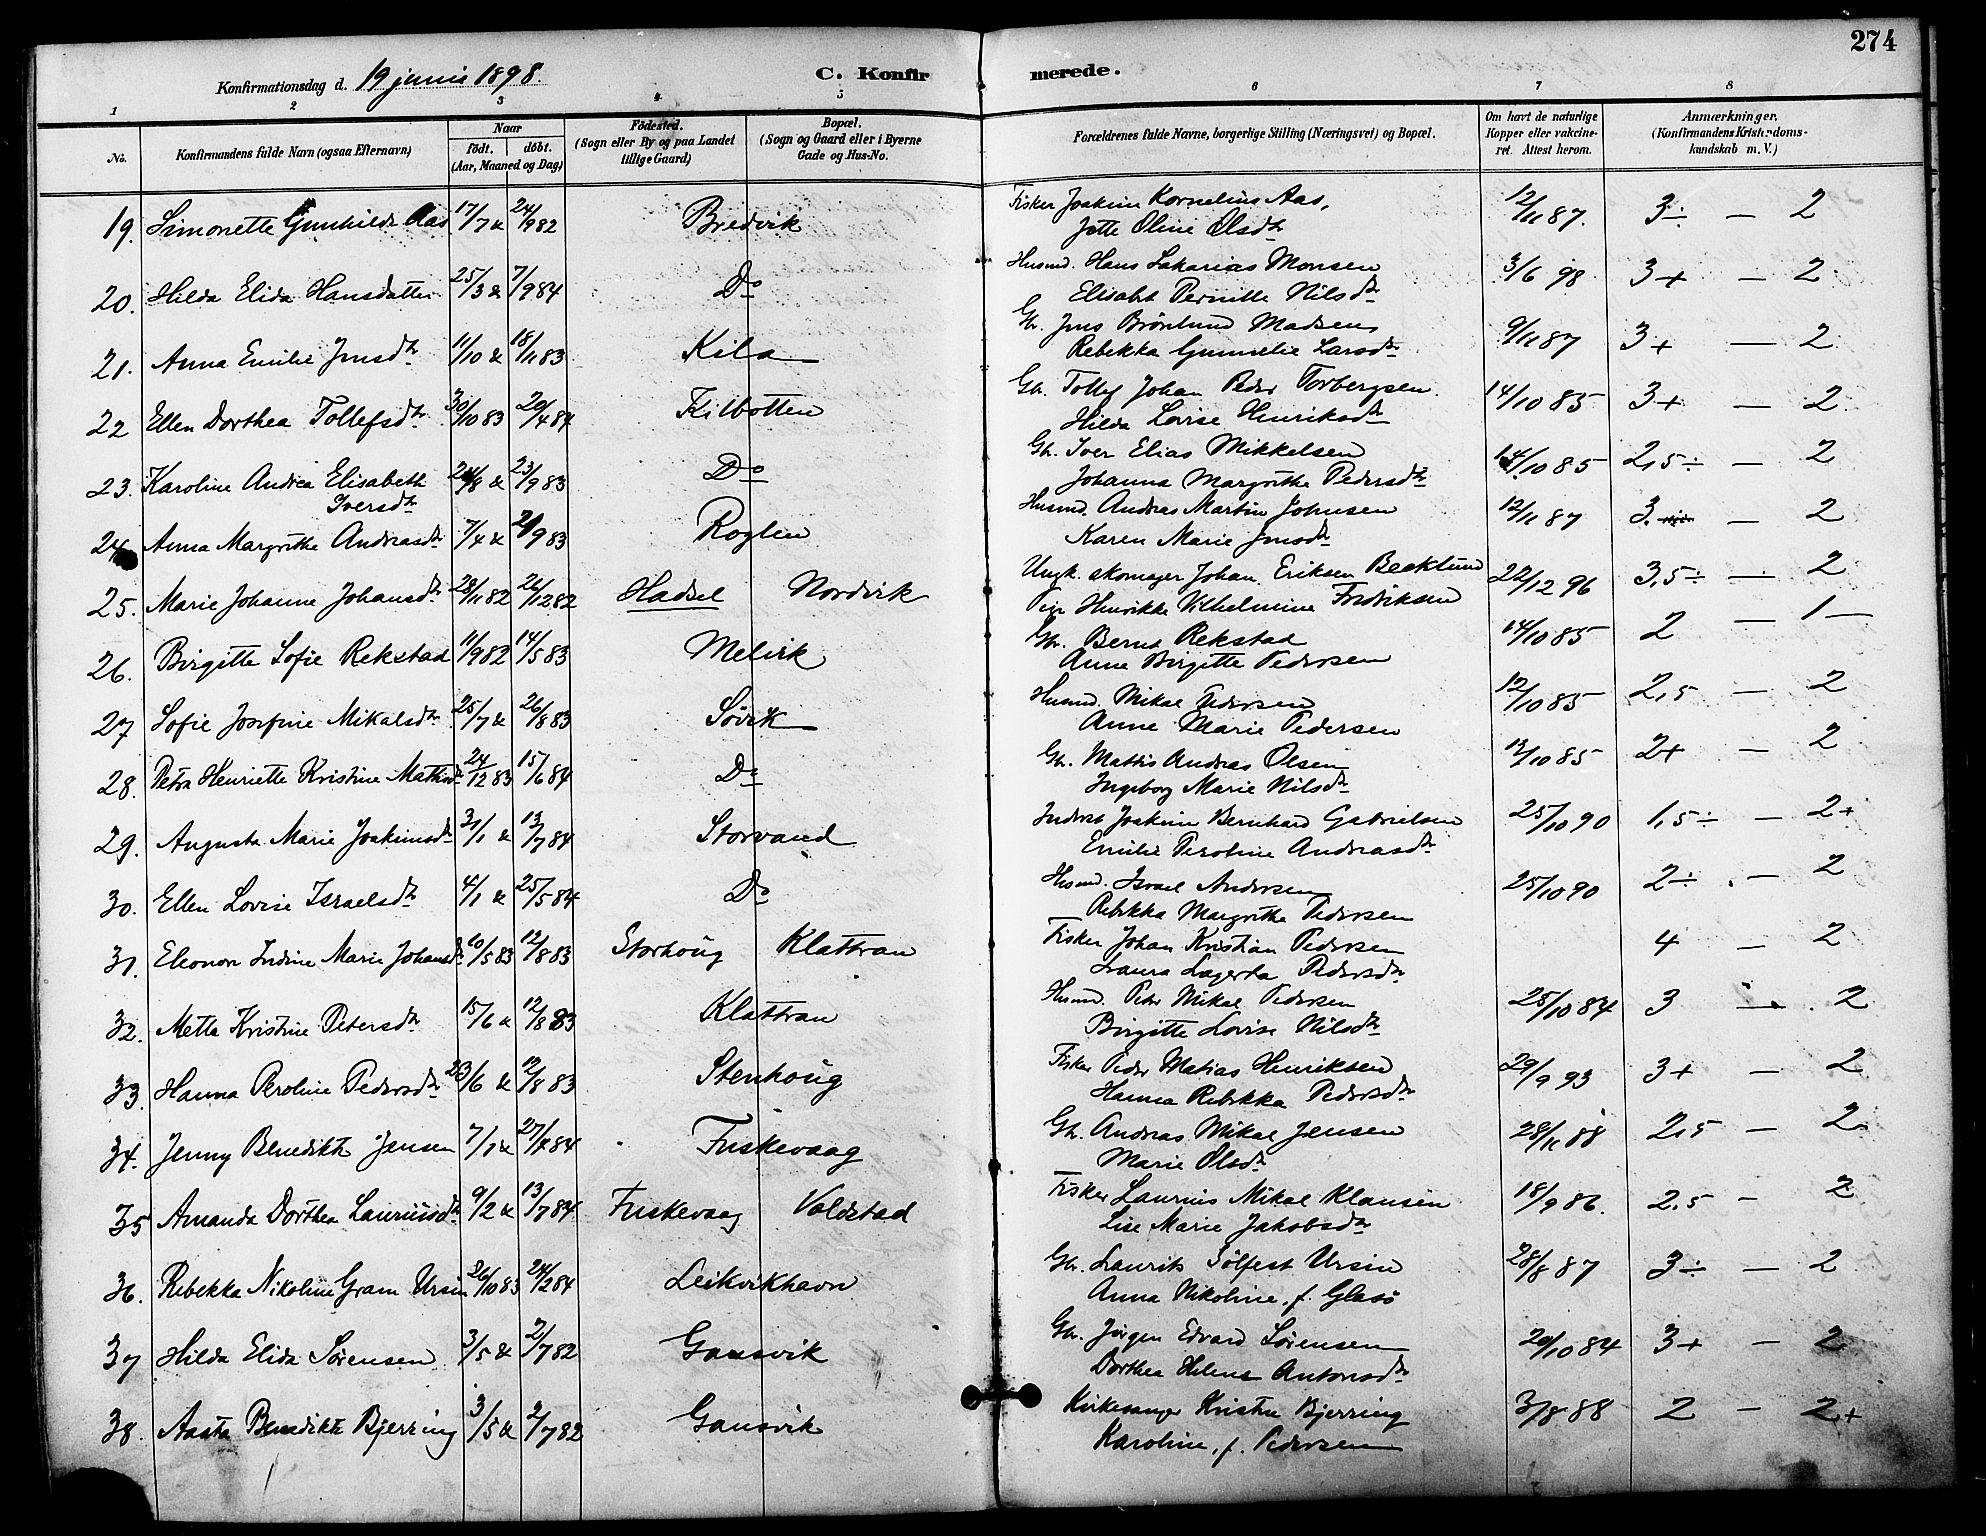 274
Konfirmationsdag d. 19 junii 1898. C. Konfir merede.
1 2 3 4 5 6 7 8
No. Konfirmandens fulde Navn (ogsaa Efternavn) Naar födt. döbt. (Aar, Maaned og Dag) Födested. (Sogn eller By og paa Landet tillige Gaard) Bopæl. (Sogn og Gaard eller i Byerne Gade og Hus-No. Forældrenes fulde Navne, borgerlige Stilling (Næringsvei) og Bopæl. Om havt de naturlige Kopper eller vakcineret. Attest herom. Anmærkninger. (Konfirmandens Kristendomskundskab m. V.)
19. Simonette Gunhilde Aas 17/7 & 24/9 82 Bredvik Fisker Joakim Kornelius Aas, 12/11 87. 3÷ — 2
Jette Oline Olsdtr
20. Hilda Elida Hansdatter 25/3 & 7/9 84 Do Husmd. Hans Sakarias Monsen 3/6 98 3+ — 2
Elisabt Pernille Nilsdtr
21. Anna Emilie Jensdtr 11/10 & 18/11 83 Kila Gbr. Jens Brønlund Madsen 9/11 87 3+ — 2
Rebekka Gunnelie Larsdtr
22 Ellen Dorthea Tollefsdtr 30/10 83 20/4 84 Kilbotten Gbr. Tollef Johan Peder Torbergsen 14/10 85 3+ — 2
Hilda Lovise Henriksdtr
23. Karoline Andrea Elisabeth Iversdtr 24/8 & 23/9 83 Do Gbr. Iver Elias Mikkelsen 14/10 85 2,5÷ — 2
Johanna Margrethe Pedersdtr
24. Anna Margrethe Andreasdtr 7/4 & 2/9 83 Roglen Husmd. Andreas Martin Johnsen 12/11 87 3. — 2
Karen Marie Jensdtr
25. Marie Johanne Johansdtr 28/11 82 26/12 82 Hadsel Nordvik Ungk. skomager Johan Eriksen Becklund 22/12 96 3,5÷ — 2
Pige Henrikke Vilhelmine Fredriksen
26. Birgitte Sofie Rekstad 11/9 82 14/5 83 Melvik Gbr. Bernt Rekstad 14/10 85 2 — 1 —
Anne Birgitte Pedersen
27 Sofie Josefine Mikalsdtr 25/7 & 26/8 83 Sörvik Husmd. Mikal Pedersen 12/10 85 2,5 — 2
Anne Marie Pedersen
28. Petra Henriette Kristine Mathisdtr 24/12 83 15/6 84 Do Gbr. Mattis Andreas Olsen 13/10 85 2+ — 2
Ingeborg Marie Nilsdtr
29. Augusta Marie Joakimsdtr 31/1 & 13/7 84 Storvand Inderst Joakim Bernhard Gabrielsen 25/10 90 1,5÷ — 2+
Emilie Peroline Andreasdtr
30. Ellen Lovise Israelsdtr 4/1 & 25/5 84 Do Husmd. Israel Andersen 25/10 90 2÷ — 2
Rebekka Margrethe Pedersen
31. Eleonora Indine Marie Johansdtr 10/5 83 12/8 83 Storhoug Klattran Fisker Johan Kristian Pedersen 4 — 2
Laura Lagerta Pedersdtr
32. Metta Kristine Petersdtr 15/6 & 12/8 83 Klattran Husmd. Peder Mikal Pedersen 25/10 84 3 — 2
Birgitte Lovise Nilsdtr
33. Hanna Peroline Pedersdtr 23/6 & 12/8 83 Stenhoug Fisker Peder Matias Henriksen 29/9 93 3+ — 2
Hanna Rebekka Pedersdtr
34. Jenny Benedikte Jensen 7/1 & 27/4 84 Fuskevaag Gbr. Andreas Mikal Jensen 28/11 88 2,5 — 2
Marie Olsdtr
35 Amanda Dorthea Lauriusdtr 9/2 & 13/7 84 Fuskevaag Voldstad Fisker Laurius Mikal Klausen 18/9 86. 2,5 — 2
Lise Marie Jakobsdtr
36. Rebekka Nikoline Gram Ursin 26/10 83 24/2 84 Leikvikhavn Gbr. Laurits Sölfest Ursin 28/8 87 3÷ — 2
Anna Nikoline, f. Glasö
37. Hilda Elida Sörensen 3/5 & 2/7 82 Gausvik Gbr. Jörgen Edvard Sörensen 20/10 84 3+ — 2
Dorthea Helene Antonsdtr
38. Aasta Benedikte Bjerring 3/5 & 2/7 82 Gausvik Kirkesanger Kristen Bjerring 3/8 88 2 — 2+
Karoline, f. Pedersen